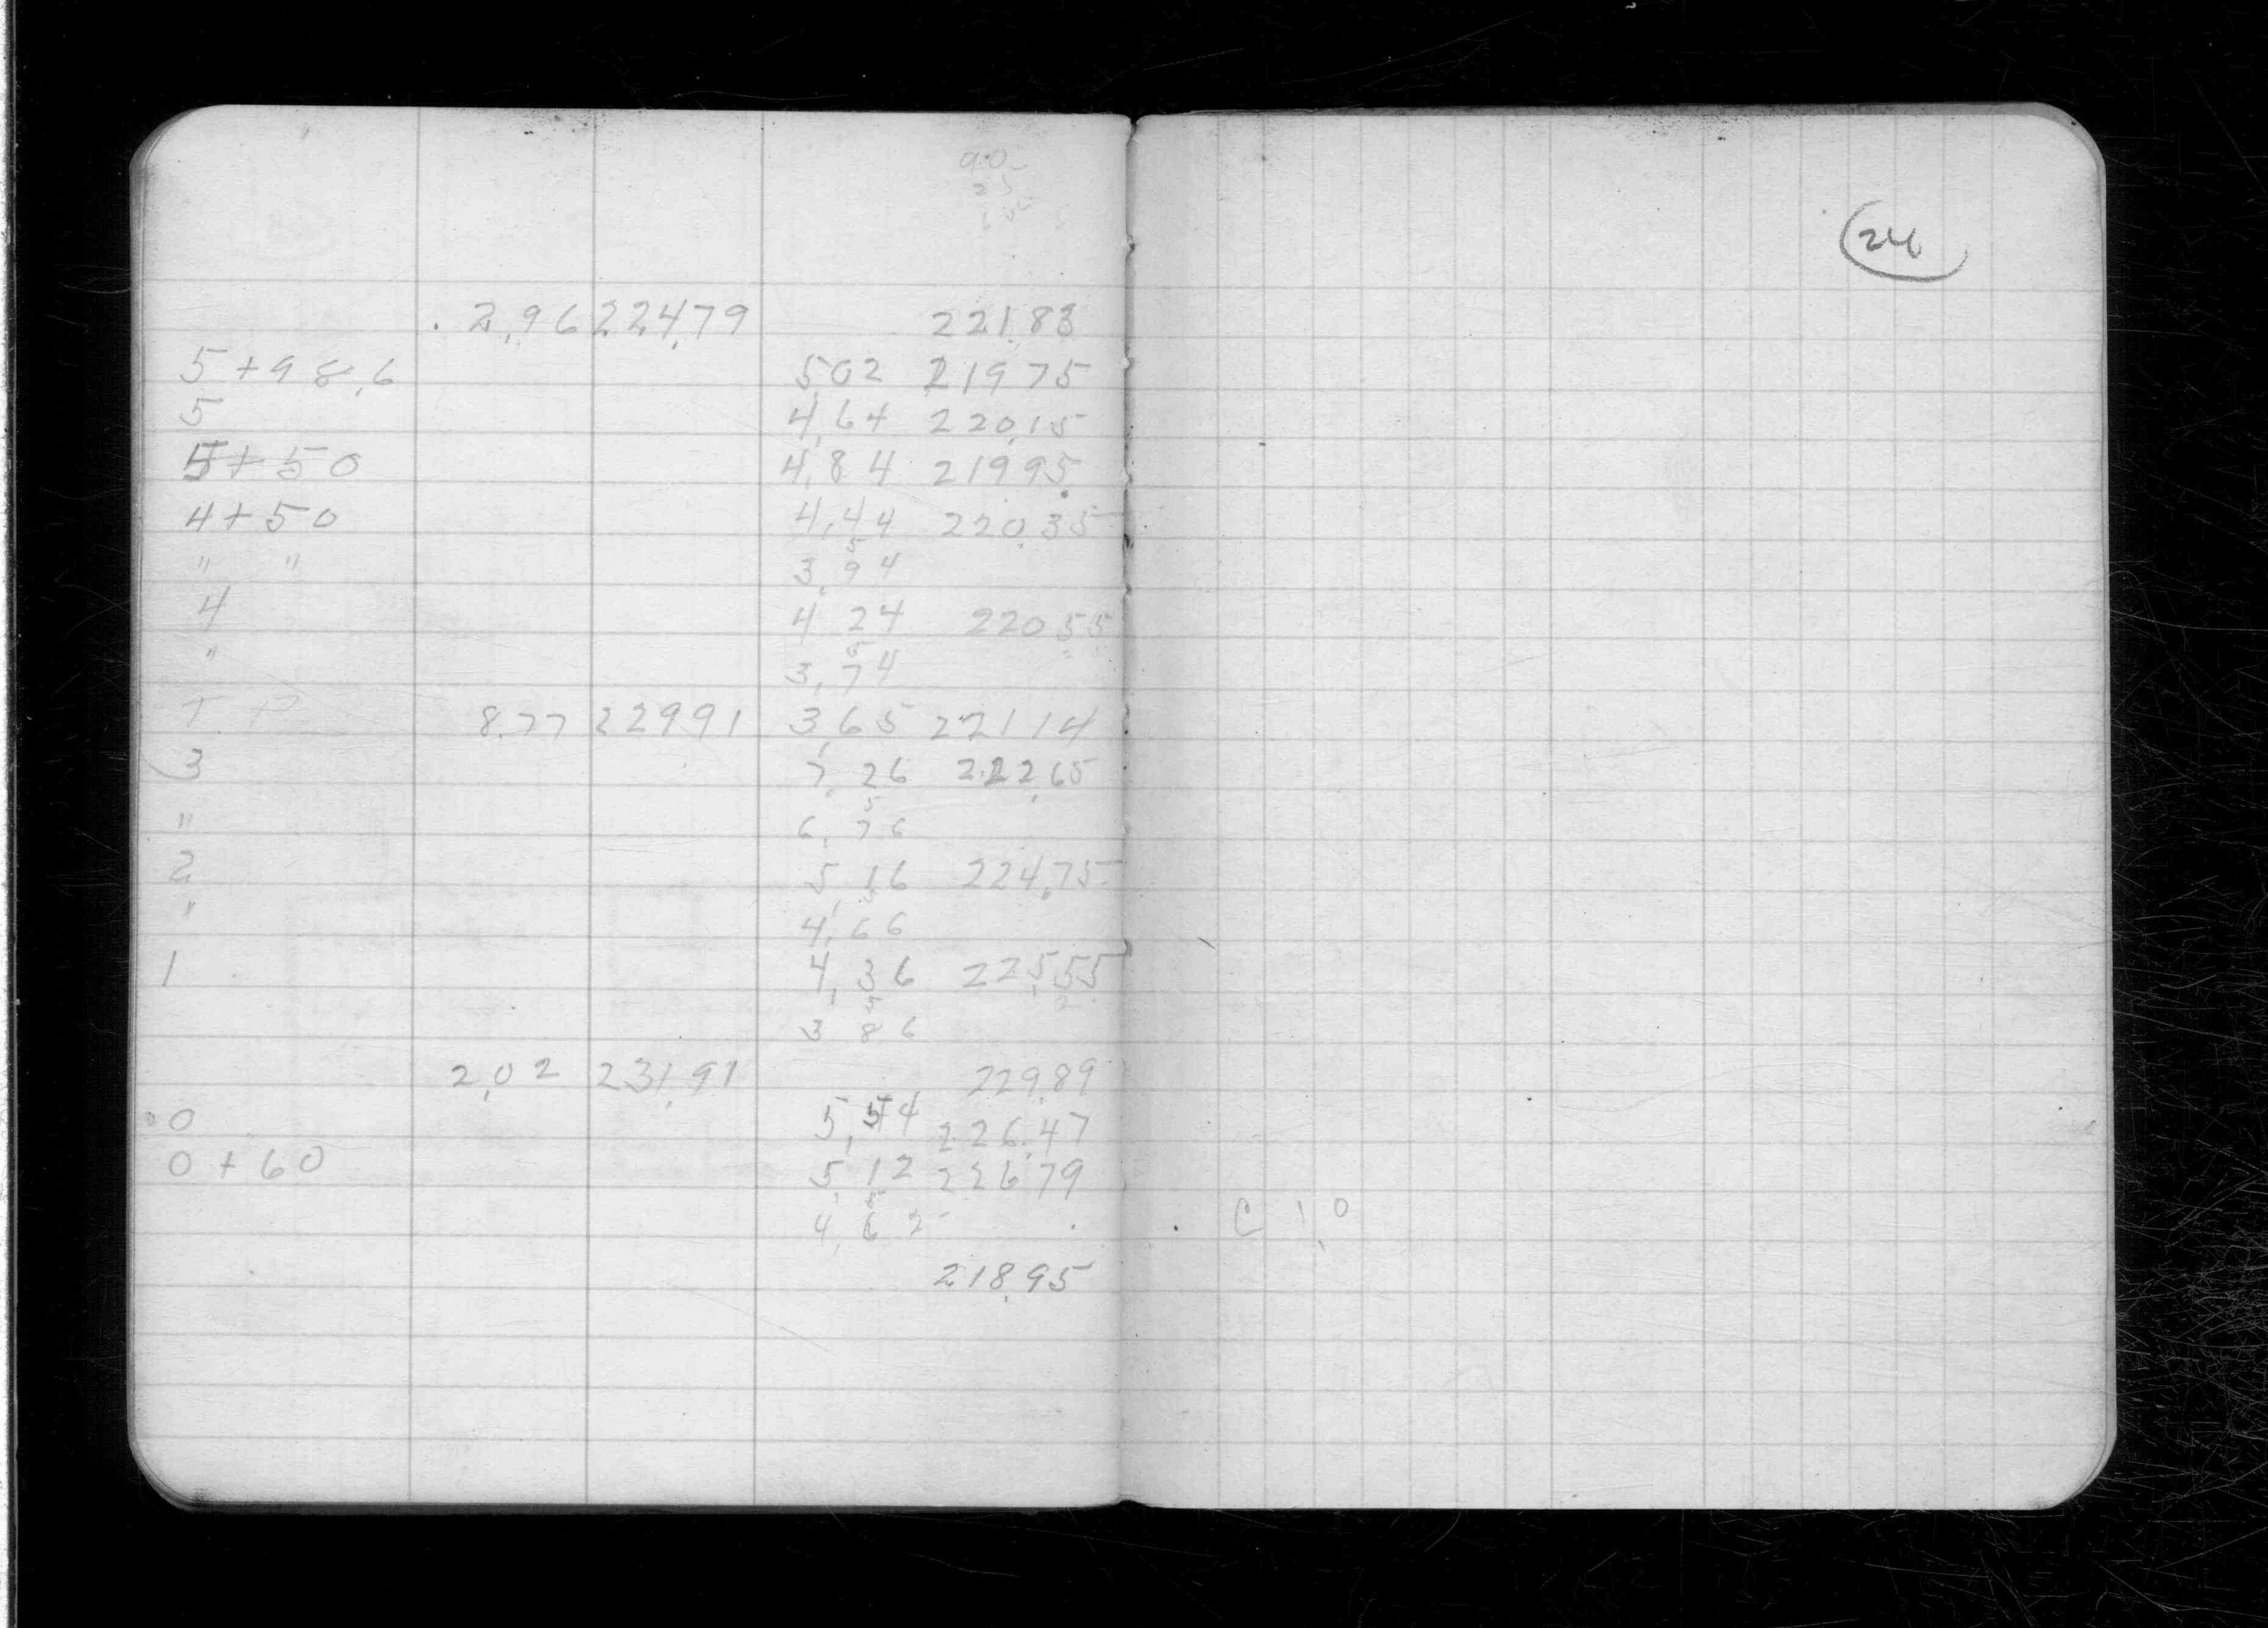 90
25
2,96 224,79 221,83
5+98,6 502 21975
5 4,64 220,15
5+50 4,84 21995
4+50 4,44 220,35
" " 5
3,94
4 4 24 22055
" 5
3,74
T P 8.77 22991 3,65 22114
3 7,26 222,65
" 5
6,76
2 5,16 224,75
" 5
4,66
1 4,36 225,55
5
3 86
2,02 231,91 229,89
0 5,54 226,47
0+60 5,12 22679
5
4,62
218,95
24
C 1,0